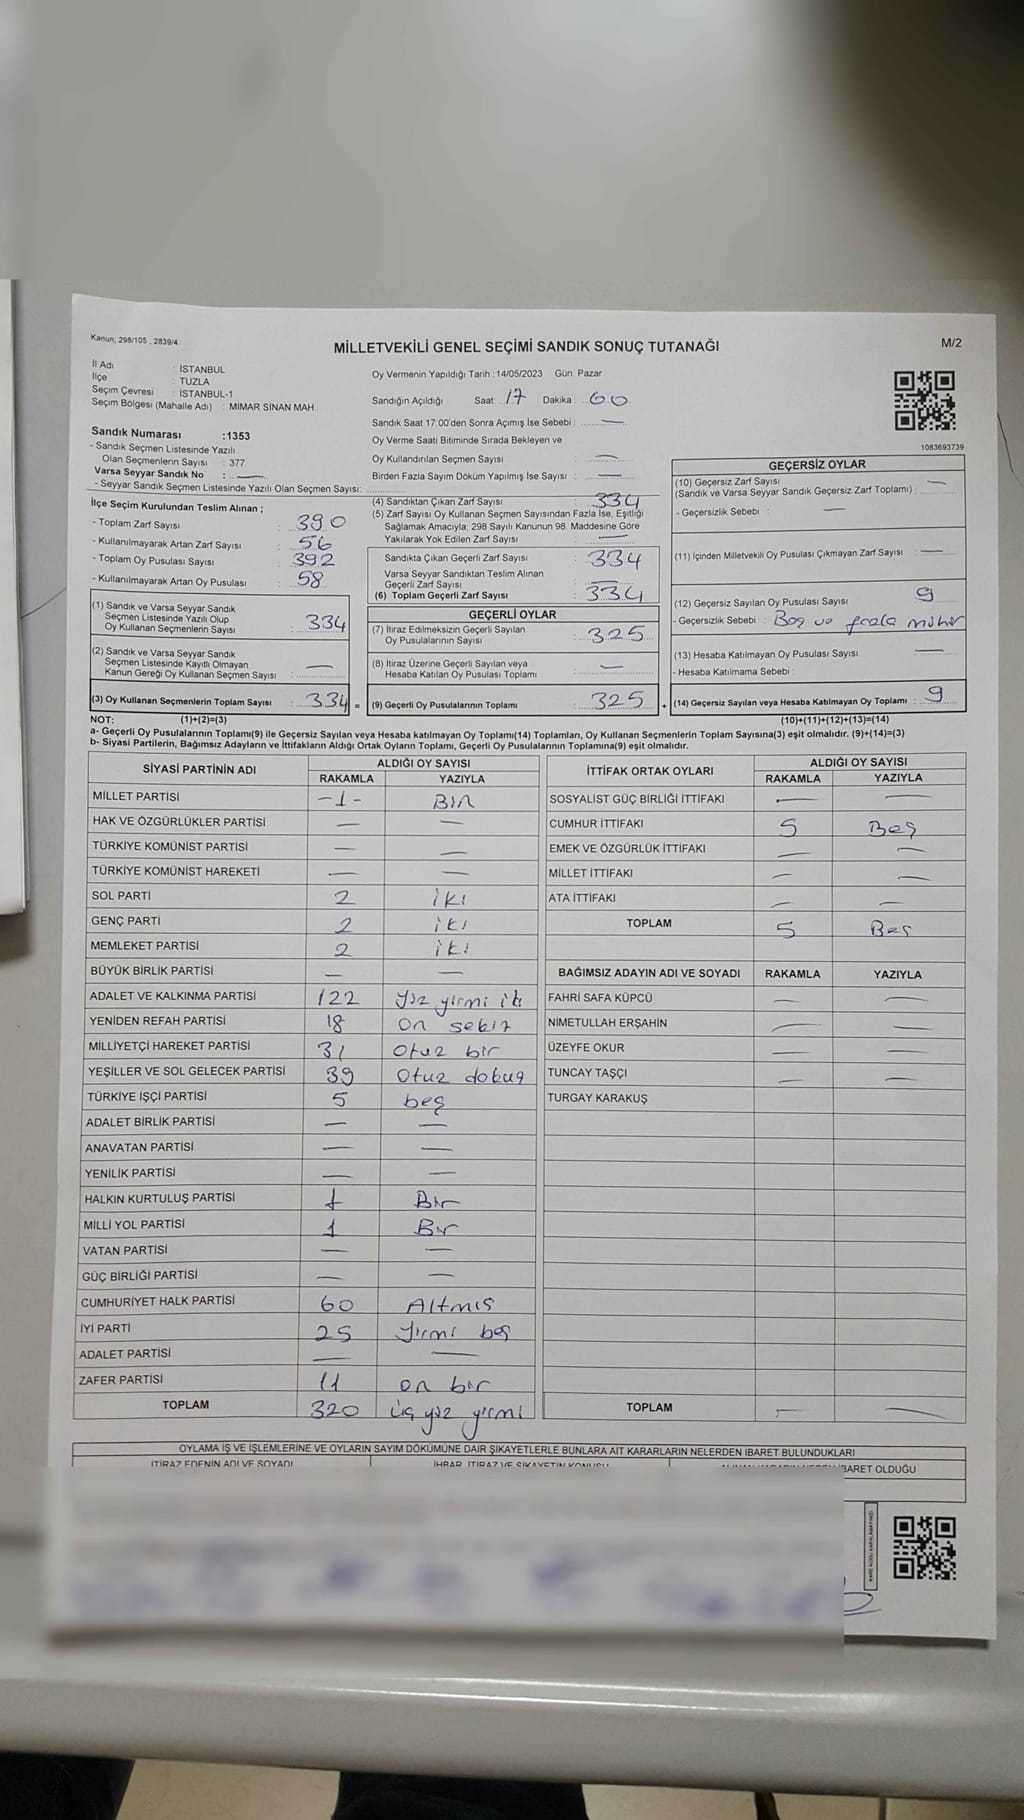 Kanun; 298/105 , 2839/4
MİLLETVEKİLİ GENEL SEÇİMİ SANDIK SONUÇ TUTANAĞI
M/2
İl Adı : İSTANBUL
İlçe : TUZLA
Seçim Çevresi : İSTANBUL-1
Seçim Bölgesi (Mahalle Adı) : MİMAR SİNAN MAH.
Sandık Numarası :1353
- Sandık Seçmen Listesinde Yazılı
Olan Seçmenlerin Sayısı : 377
Varsa Seyyar Sandık No : —
- Seyyar Sandık Seçmen Listesinde Yazılı Olan Seçmen Sayısı:
Oy Vermenin Yapıldığı Tarih :14/05/2023 Gün: Pazar
Sandığın Açıldığı Saat: 17 Dakika : 00
Sandık Saat 17.00'den Sonra Açımış İse Sebebi : —
Oy Verme Saati Bitiminde Sırada Bekleyen ve
Oy Kullandırılan Seçmen Sayısı : —
Birden Fazla Sayım Döküm Yapılmış İse Sayısı : —
1083693739
İlçe Seçim Kurulundan Teslim Alınan ;
- Toplam Zarf Sayısı : 390
- Kullanılmayarak Artan Zarf Sayısı : 56
- Toplam Oy Pusulası Sayısı : 392
- Kullanılmayarak Artan Oy Pusulası : 58
(1) Sandık ve Varsa Seyyar Sandık
Seçmen Listesinde Yazılı Olup
Oy Kullanan Seçmenlerin Sayısı : 334
(2) Sandık ve Varsa Seyyar Sandık
Seçmen Listesinde Kayıtlı Olmayan
Kanun Gereği Oy Kullanan Seçmen Sayısı : —
(3) Oy Kullanan Seçmenlerin Toplam Sayısı : 334 =
(4) Sandıktan Çıkan Zarf Sayısı : 334
(5) Zarf Sayısı Oy Kullanan Seçmen Sayısından Fazla İse, Eşitliği
Sağlamak Amacıyla; 298 Sayılı Kanunun 98. Maddesine Göre
Yakılarak Yok Edilen Zarf Sayısı : —
Sandıkta Çıkan Geçerli Zarf Sayısı : 334
Varsa Seyyar Sandıktan Teslim Alınan
Geçerli Zarf Sayısı : —
(6) Toplam Geçerli Zarf Sayısı : 334
GEÇERLİ OYLAR
(7) İtiraz Edilmeksizin Geçerli Sayılan
Oy Pusulalarının Sayısı : 325
(8) İtiraz Üzerine Geçerli Sayılan veya
Hesaba Katılan Oy Pusulası Toplamı : —
(9) Geçerli Oy Pusulalarının Toplamı : 325 +
GEÇERSİZ OYLAR
(10) Geçersiz Zarf Sayısı
(Sandık ve Varsa Seyyar Sandık Geçersiz Zarf Toplamı) : —
- Geçersizlik Sebebi : —
(11) İçinden Milletvekili Oy Pusulası Çıkmayan Zarf Sayısı : —
(12) Geçersiz Sayılan Oy Pusulası Sayısı : 9
- Geçersizlik Sebebi : Boş ve fazla mühür
(13) Hesaba Katılmayan Oy Pusulası Sayısı : —
- Hesaba Katılmama Sebebi :
(14) Geçersiz Sayılan veya Hesaba Katılmayan Oy Toplamı : 9
NOT: (1)+(2)=(3) (10)+(11)+(12)+(13)=(14)
a- Geçerli Oy Pusulalarının Toplamı(9) ile Geçersiz Sayılan veya Hesaba katılmayan Oy Toplamı(14) Toplamları, Oy Kullanan Seçmenlerin Toplam Sayısına(3) eşit olmalıdır. (9)+(14)=(3)
b- Siyasi Partilerin, Bağımsız Adayların ve İttifakların Aldığı Ortak Oyların Toplamı, Geçerli Oy Pusulalarının Toplamına(9) eşit olmalıdır.
SİYASİ PARTİNİN ADI ALDIĞI OY SAYISI
RAKAMLA YAZIYLA
MİLLET PARTİSİ -1- BIR
HAK VE ÖZGÜRLÜKLER PARTİSİ — —
TÜRKİYE KOMÜNİST PARTİSİ — —
TÜRKİYE KOMÜNİST HAREKETİ — —
SOL PARTİ 2 iki
GENÇ PARTİ 2 iki
MEMLEKET PARTİSİ 2 iki
BÜYÜK BİRLİK PARTİSİ — —
ADALET VE KALKINMA PARTİSİ 122 yüz yirmi iki
YENİDEN REFAH PARTİSİ 18 on sekiz
MİLLİYETÇİ HAREKET PARTİSİ 31 Otuz bir
YEŞİLLER VE SOL GELECEK PARTİSİ 39 Otuz dokuz
TÜRKİYE İŞÇİ PARTİSİ 5 beş
ADALET BİRLİK PARTİSİ — —
ANAVATAN PARTİSİ — —
YENİLİK PARTİSİ — —
HALKIN KURTULUŞ PARTİSİ 1 Bir
MİLLİ YOL PARTİSİ 1 Bir
VATAN PARTİSİ — —
GÜÇ BİRLİĞİ PARTİSİ — —
CUMHURİYET HALK PARTİSİ 60 Altmış
İYİ PARTİ 25 Yirmi beş
ADALET PARTİSİ — —
ZAFER PARTİSİ 11 on bir
TOPLAM 320 üç yüz yirmi
İTTİFAK ORTAK OYLARI ALDIĞI OY SAYISI
RAKAMLA YAZIYLA
SOSYALİST GÜÇ BİRLİĞİ İTTİFAKI — —
CUMHUR İTTİFAKI 5 Beş
EMEK VE ÖZGÜRLÜK İTTİFAKI — —
MİLLET İTTİFAKI — —
ATA İTTİFAKI — —
TOPLAM 5 Beş
BAĞIMSIZ ADAYIN ADI VE SOYADI RAKAMLA YAZIYLA
FAHRİ SAFA KÜPCÜ — —
NİMETULLAH ERŞAHİN — —
ÜZEYFE OKUR — —
TUNCAY TAŞÇI — —
TURGAY KARAKUŞ
TOPLAM — —
OYLAMA İŞ VE İŞLEMLERİNE VE OYLARIN SAYIM DÖKÜMÜNE DAİR ŞİKAYETLERLE BUNLARA AİT KARARLARIN NELERDEN İBARET BULUNDUKLARI
İTİRAZ EDENİN ADI VE SOYADI İHBAR, İTİRAZ VE ŞİKAYETİN KONUSU İBARET OLDUĞU